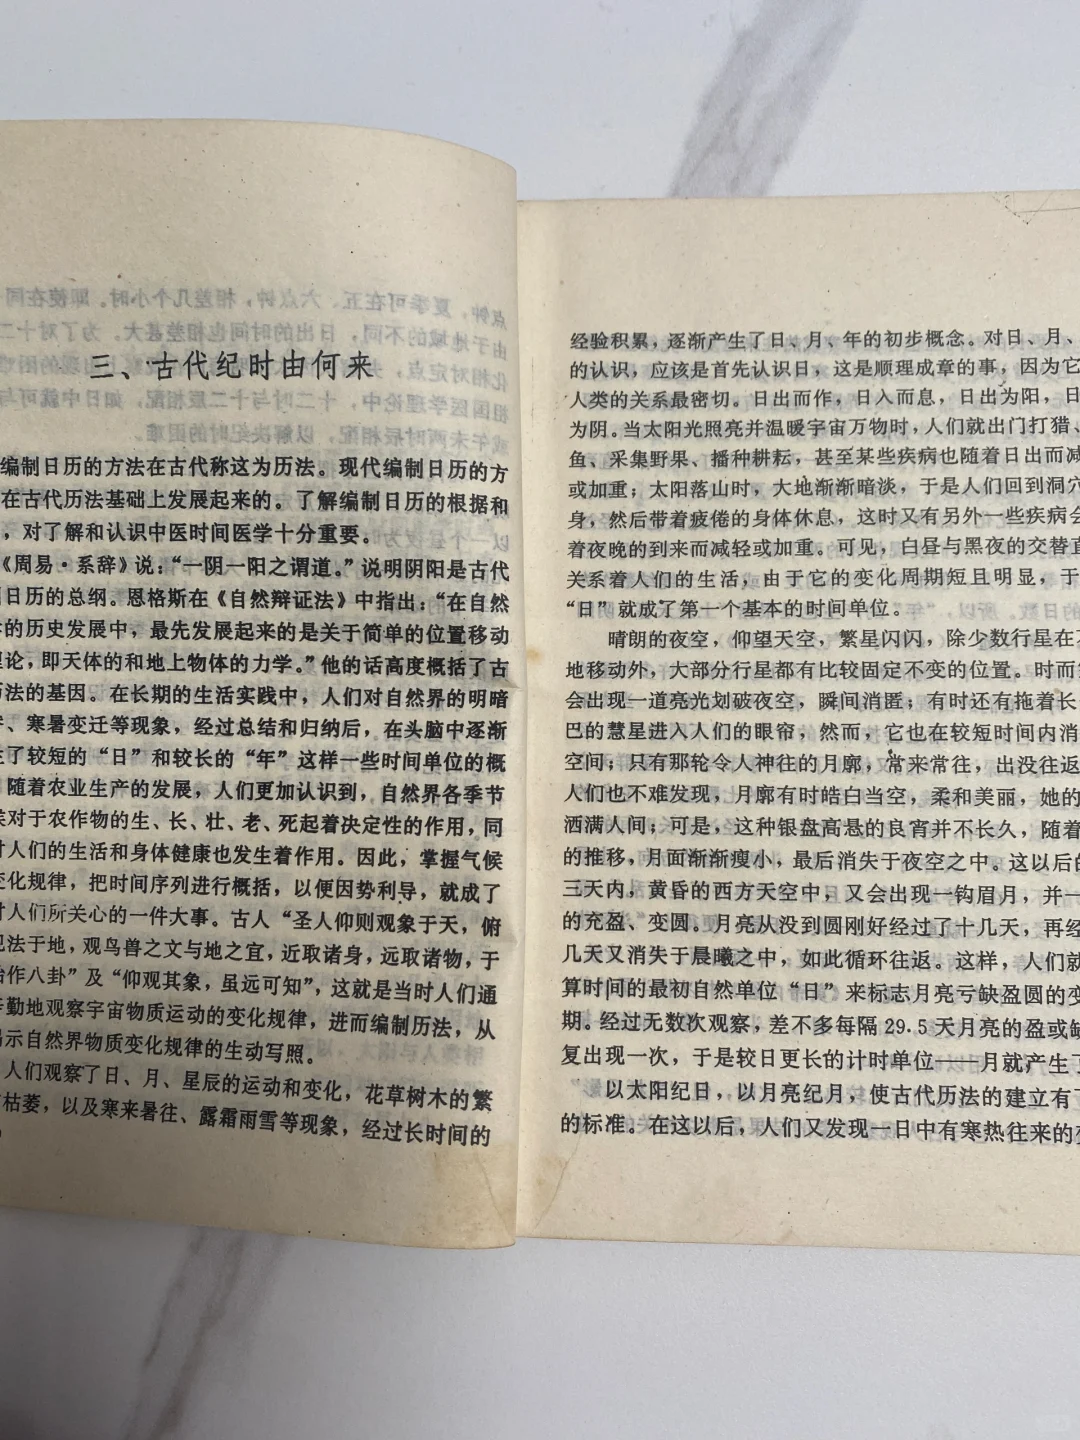 三、古代纪时由何来
编制日历的方法在古代称这为历法。现代编制日历的方
在古代历法基础上发展起来的。了解编制日历的根据和
，对了解和认识中医时间医学十分重要。
《周易·系辞》说：“一阴一阳之谓道。”说明阴阳是古代
日历的总纲。恩格斯在《自然辩证法》中指出：“在自然
的历史发展中，最先发展起来的是关于简单的位置移动
论，即天体的和地上物体的力学。”他的话高度概括了古
历法的基因。在长期的生活实践中，人们对自然界的明暗
、寒暑变迁等现象，经过总结和归纳后，在头脑中逐渐
生了较短的“日”和较长的“年”这样一些时间单位的概
随着农业生产的发展，人们更加认识到，自然界各季节
候对于农作物的生、长、壮、老、死起着决定性的作用，同
对人们的生活和身体健康也发生着作用。因此，掌握气候
变化规律，把时间序列进行概括，以便因势利导，就成了
时人们所关心的一件大事。古人“圣人仰则观象于天，俯
观法于地，观鸟兽之文与地之宜，近取诸身，远取诸物，于
始作八卦”及“仰观其象，虽远可知”，这就是当时人们通
辛勤地观察宇宙物质运动的变化规律，进而编制历法，从
揭示自然界物质变化规律的生动写照。
人们观察了日、月、星辰的运动和变化，花草树木的繁
枯萎，以及寒来暑往、露霜雨雪等现象，经过长时间的
经验积累，逐渐产生了日、月、年的初步概念。对日、月、
的认识，应该是首先认识日，这是顺理成章的事，因为它
人类的关系最密切。日出而作，日入而息，日出为阳，日
为阴。当太阳光照亮并温暖宇宙万物时，人们就出门打猎、
鱼、采集野果、播种耕耘，甚至某些疾病也随着日出而减
或加重；太阳落山时，大地渐渐暗淡，于是人们回到洞穴
身，然后带着疲倦的身体休息，这时又有另外一些疾病会
着夜晚的到来而减轻或加重。可见，白昼与黑夜的交替直
关系着人们的生活，由于它的变化周期短且明显，于
“日”就成了第一个基本的时间单位。
晴朗的夜空，仰望天空，繁星闪闪，除少数行星在不
地移动外，大部分行星都有比较固定不变的位置。时而
会出现一道亮光划破夜空，瞬间消匿；有时还有拖着长
巴的慧星进入人们的眼帘，然而，它也在较短时间内消
空间；只有那轮令人神往的月廓，常来常往，出没往返
人们也不难发现，月廓有时皓白当空，柔和美丽，她的
洒满人间；可是，这种银盘高悬的良宵并不长久，随着
的推移，月面渐渐瘦小，最后消失于夜空之中。这以后的
三天内，黄昏的西方天空中，又会出现一钩眉月，并一
的充盈、变圆。月亮从没到圆刚好经过了十几天，再经
几天又消失于晨曦之中，如此循环往返。这样，人们就
算时间的最初自然单位“日”来标志月亮亏缺盈圆的变
期。经过无数次观察，差不多每隔29.5天月亮的盈或缺
复出现一次，于是较日更长的计时单位——月就产生了
以太阳纪日，以月亮纪月，使古代历法的建立有了
的标准。在这以后，人们又发现一日中有寒热往来的变